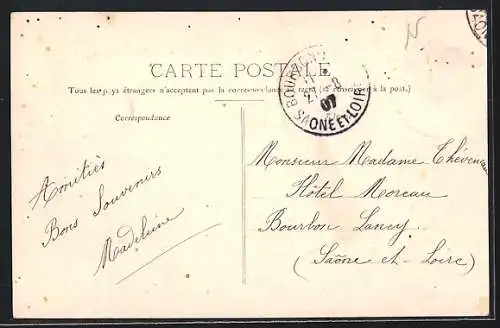 CARTE POSTALE
Tous les pays étrangers n'acceptent pas la correspondance au recto (se renseigner à la poste.)
BOURBON
21 - 8
07
SAONE ET LOIRE
Correspondance
Amitiés
Bons Souvenirs
Madeleine
Monsieur Madame
Hôtel Moreau
Bourbon Lancy.
(Saône et Loire)